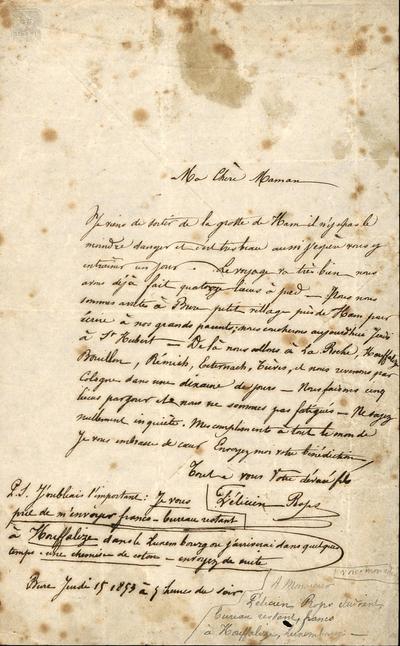 Ma Chère Maman
Je viens de sortir de la grotte de Ham il n'y a pas le
moindre danger et c'est très beau aussi j'espère vous y
entrainer un jour. Le voyage va très bien nous
avons déjà fait quatorze lieues à pied — Nous nous
sommes arretés à Bure petit village près de Ham pour
écrire à nos grands parents, nous coucherons aujourd'hui Jeudi
à St Hubert — De là nous allons à La Roche, Houffalize
Bouillon, Rémich, Echternach, Trèves, et nous revenons par
Cologne dans une dixaine de jours — Nous faisons cinq
lieues par jour et nous ne sommes pas fatigués — Ne soyez
nullement inquiète. Mes compliments à tout le monde
Je vous embrasse de cœur Envoyez moi votre bénédiction
Tout à vous Votre dévoué fils
Félicien Rops
P.S. J'oubliais l'important: Je vous
prie de m'envoyer franco-bureau restant
à Houffalize dans le Luxembourg où j'arriverai dans quelques
temps. une chemise de coton — envoyez de suite
Bure Jeudi 15 1853 à 5 heures du soir
A Monsieur
Félicien Rops étudiant
bureau restant, franco
à Houffalize, Luxembourg —